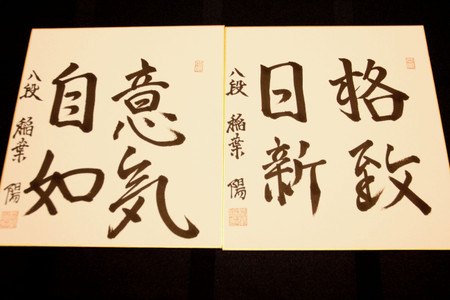 格致
日新
八段 稲葉 陽
意気
自如
八段 稲葉 陽